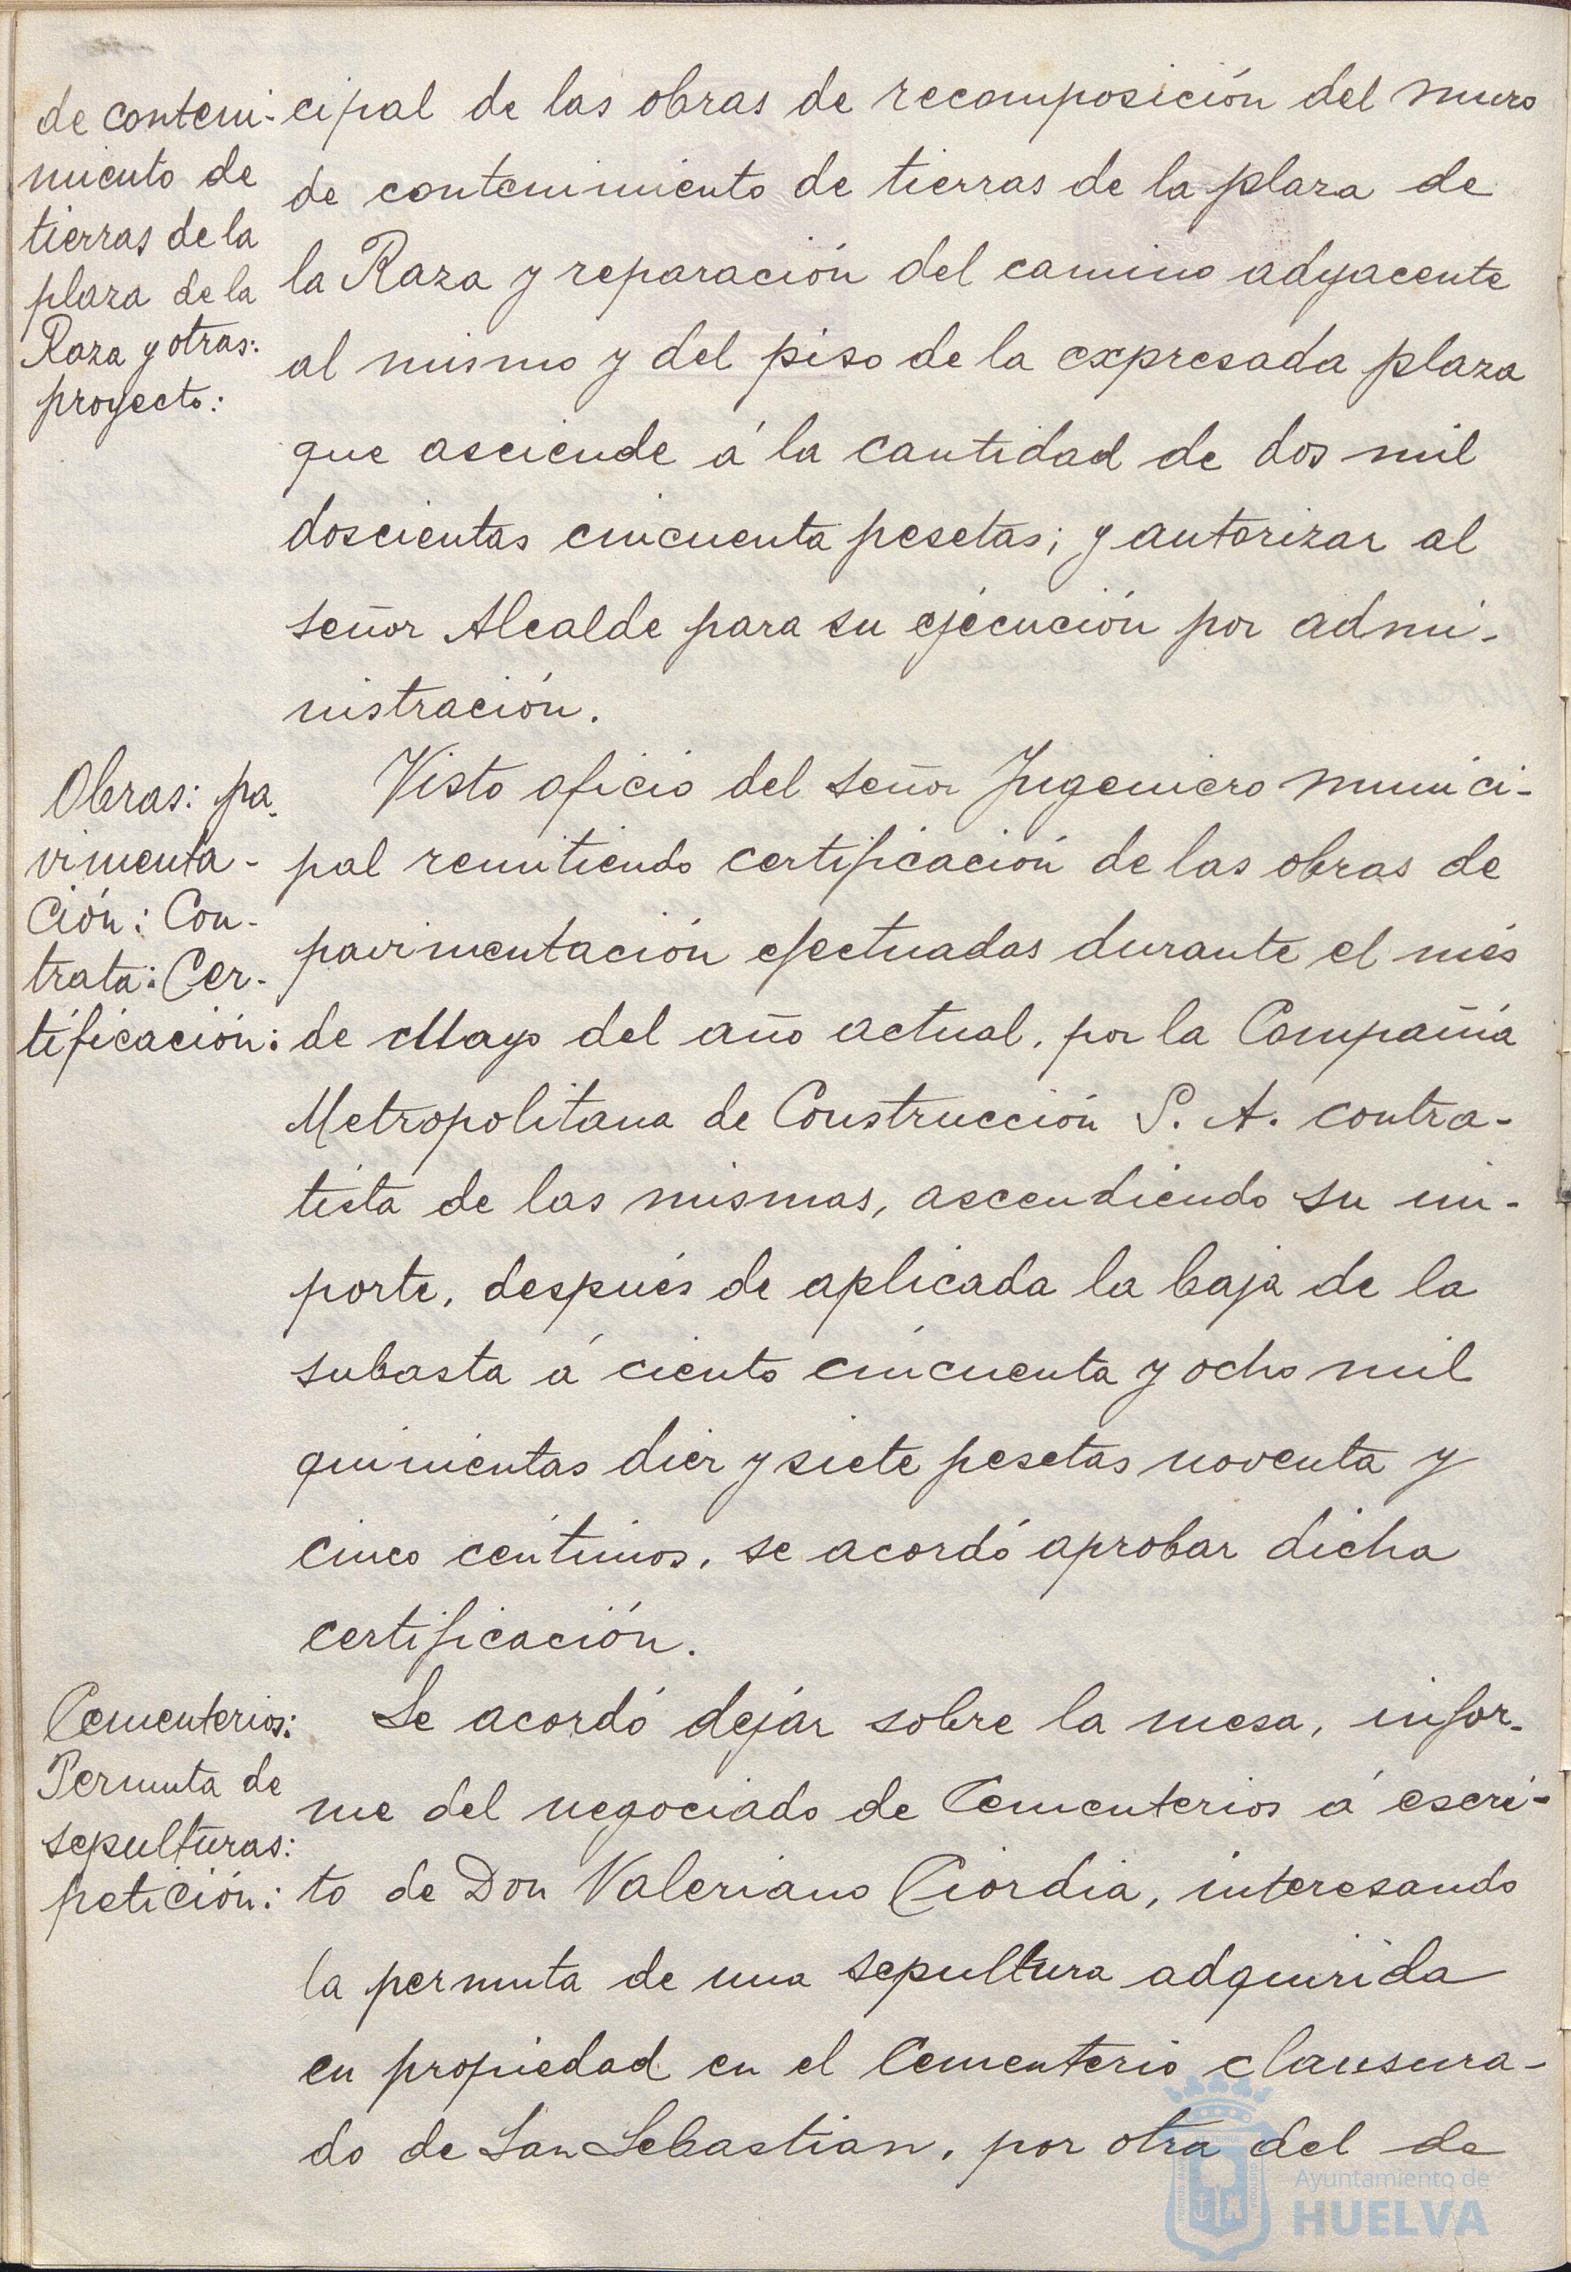 de conteni-
miento de
tierras de la
plaza de la
Raza y otras:
proyecto:
cipal de las obras de recomposición del muro
de contenimiento de tierras de la plaza de
la Raza y reparación del camino adyacente
al mismo y del piso de la expresada plaza
que asciende á la cantidad de dos mil
doscientas cincuenta pesetas; y autorizar al
señor Alcalde para su ejecución por admi-
nistración.
Obras: pa-
vimenta-
ción: Con-
trata: Cer-
tificación:
Visto oficio del señor Ingeniero munici-
pal remitiendo certificación de las obras de
pavimentación efectuadas durante el més
de Mayo del año actual, por la Compañía
Metropolitana de Construcción S. A. contra-
tista de las mismas, ascendiendo su im-
porte, después de aplicada la baja de la
subasta á ciento cincuenta y ocho mil
quinientas diez y siete pesetas noventa y
cinco céntimos, se acordó aprobar dicha
certificación.
Cementerios:
Permuta de
sepulturas:
petición:
Se acordó dejar sobre la mesa, infor-
me del negociado de Cementerios á escri-
to de Don Valeriano Ciordia, interesando
la permuta de una sepultura adquirida
en propiedad en el Cementerio clausura-
do de San Sebastian, por otra del de
Ayuntamiento de
HUELVA